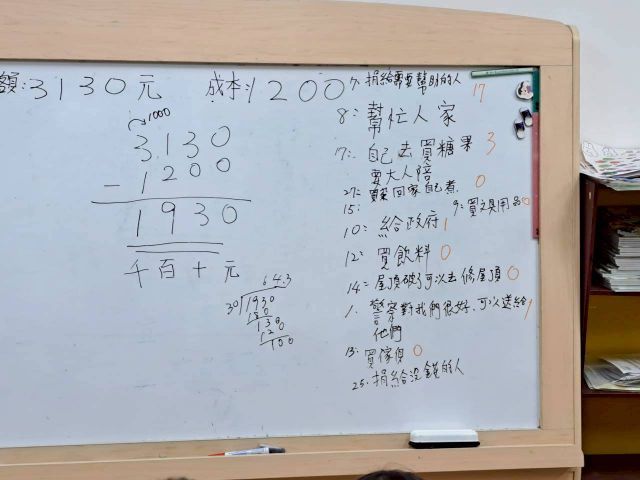 額:3130元
成本:1200
1000
3130
-1200
1930
千百十元
643
30√1930
180
130
120
100
7: 捐給需要幫助的人 17
8: 幫忙人家
17: 自己去買糖果 3
要大人陪
27: 買菜回家自己煮 0
15:
9: 買文具用品0
10: 給政府 1
12: 買飲料 0
14: 屋頂破了可以去修屋頂 0
1. 警察對我們很好,可以送給他們 1
13: 買傢俱 0
25: 捐給沒錢的人